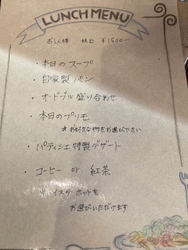 LUNCH MENU
お一人様 税込 ¥1500-
・本日のスープ
・自家製パン
・オードブル盛り合わせ
・本日のプリモ
※お好きな物をお選び下さい
・パティシエ特製デザート
・コーヒー or 紅茶
アイス or ホットを
お選びいただけます